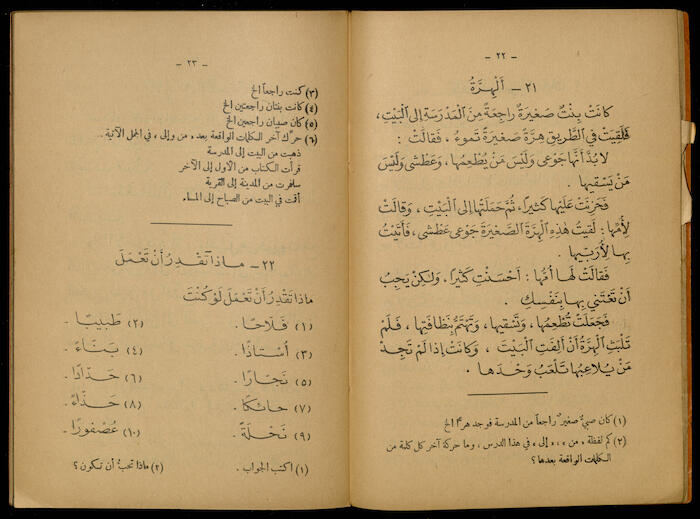 - ٢٢ -
٢١ - اَلْهِرَّةُ
كَانَتْ بِنْتٌ صَغِيرَةٌ رَاجِعَةً مِنَ الْمَدْرَسَةِ إِلَى الْبَيْتِ ،
فَلَقِيَتْ فِي الطَّرِيقِ هِرَّةً صَغِيرَةً تَمُوءُ ، فَقَالَتْ :
لَا بُدَّ أَنَّهَا جَوْعَى وَلَيْسَ مَنْ يُطْعِمُهَا ، وَعَطْشَى وَلَيْسَ
مَنْ يَسْقِيهَا .
فَحَزِنَتْ عَلَيْهَا كَثِيرًا ، ثُمَّ حَمَلَتْهَا إِلَى الْبَيْتِ ، وَقَالَتْ
لِأُمِّهَا : لَقِيتُ هٰذِهِ الْهِرَّةَ الصَّغِيرَةَ جَوْعَى عَطْشَى ، فَأَتَيْتُ
بِهَا لِأُرَبِّيَهَا .
فَقَالَتْ لَهَا أُمُّهَا : أَحْسَنْتِ كَثِيرًا ، وَلٰكِنْ يَجِبُ
أَنْ تَعْتَنِي بِهَا بِنَفْسِكِ .
فَجَعَلَتْ تُطْعِمُهَا ، وَتَسْقِيهَا ، وَتَهْتَمُّ بِنَظَافَتِهَا ، فَلَمْ
تَلْبَثِ الْهِرَّةُ أَنْ أَلِفَتِ الْبَيْتَ ، وَكَانَتْ إِذَا لَمْ تَجِدْ
مَنْ يُلَاعِبُهَا تَلْعَبُ وَحْدَهَا .
(١) كان صبيٌّ صغيرٌ راجعاً من المدرسة فوجد هرًّا الخ
(٢) كم لفظة « من » ، « إلى » في هذا الدرس ، وما حركة آخر كل كلمة من
الكلمات الواقعة بعدها ؟
- ٢٣ -
(٣) كنت راجعاً الخ
(٤) كانت بنتان راجعتين الخ
(٥) كان صبيان راجعين الخ
(٦) حرّك آخر الكلمات الواقعة بعد « من وإلى » في الجمل الآتية .
ذهبت من البيت إلى المدرسة
قرأت الكتاب من الاول إلى الآخر
سافرت من المدينة إلى القرية
أقت في البيت من الصباح إلى المساء .
٢٢ - مَاذَا تَقْدِرُ أَنْ تَعْمَلَ
مَاذَا تَقْدِرُ أَنْ تَعْمَلَ لَوْ كُنْتَ
(١) فَلَّاحًا . (٢) طَبِيبًا .
(٣) أُسْتَاذًا . (٤) بَنَّاءً .
(٥) نَجَّارًا . (٦) حَدَّادًا .
(٧) حَائِكًا . (٨) حَذَّاءً .
(٩) نَحْلَةً . (١٠) عُصْفُورًا .
(١) اكتب الجواب . (٢) ماذا تحبُّ أن تكون ؟